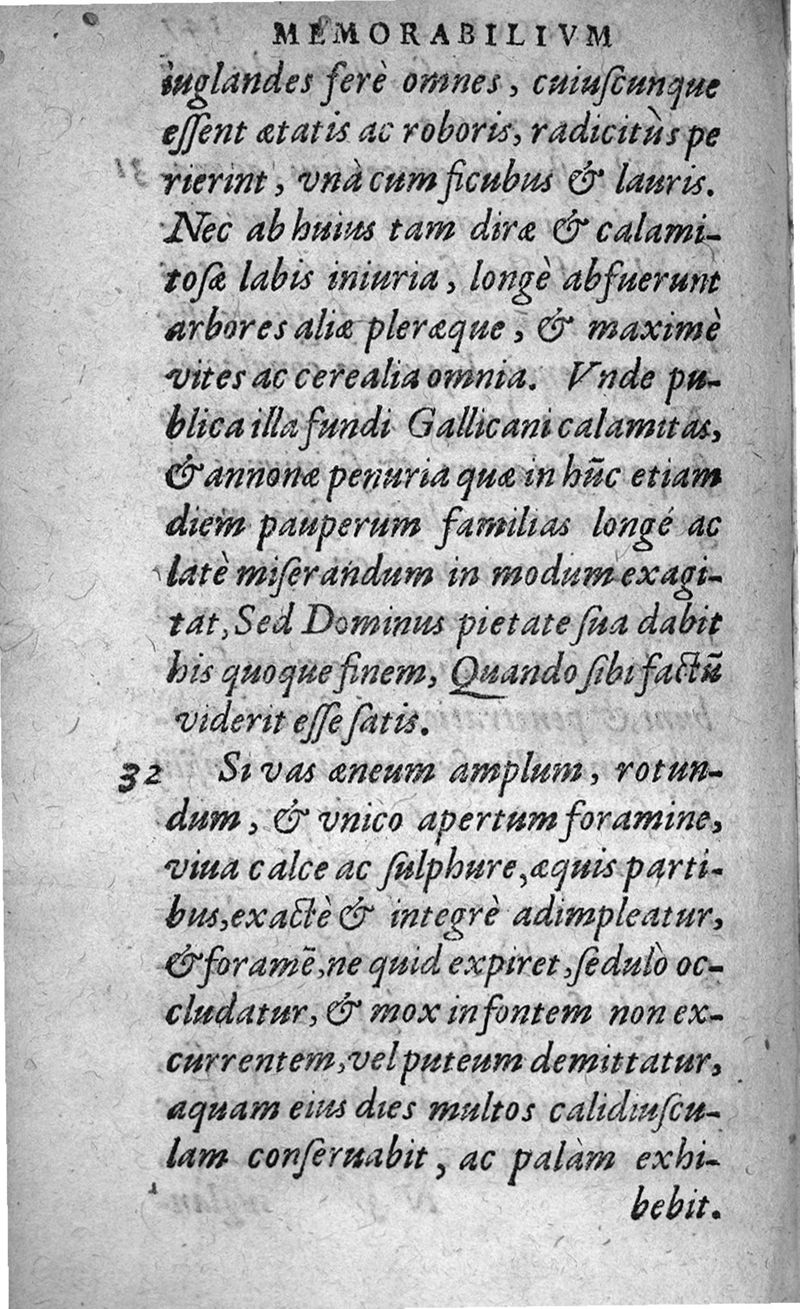 MEMORABILIVM
iuglandes ferè omnes, cuiuſcunque
eſſent ætatis ac roboris, radicitùs pe
rierint, vnà cum ficubus & lauris.
Nec ab huius tam diræ & calami-
toſæ labis iniuria, longè abfuerunt
arbores aliæ pleræque, & maximè
vites ac cerealia omnia. Vnde pu-
blica illa fundi Gallicani calamitas,
& annonæ penuria quæ in hũc etiam
diem pauperum familias longé ac
latè miſerandum in modum exagi-
tat, Sed Dominus pietate ſua dabit
his quoque finem, Quando ſibi factũ
viderit eſſe ſatis.
32 Si vas æneum amplum, rotun-
dum, & vnico apertum foramine,
viua calce ac ſulphure, æquis parti-
bus, exactè & integrè adimpleatur,
& foramẽ, ne quid expiret, ſedulò oc-
cludatur, & mox in fontem non ex-
currentem, vel puteum demittatur,
aquam eius dies multos calidiuſcu-
lam conſeruabit, ac palàm exhi-
bebit.